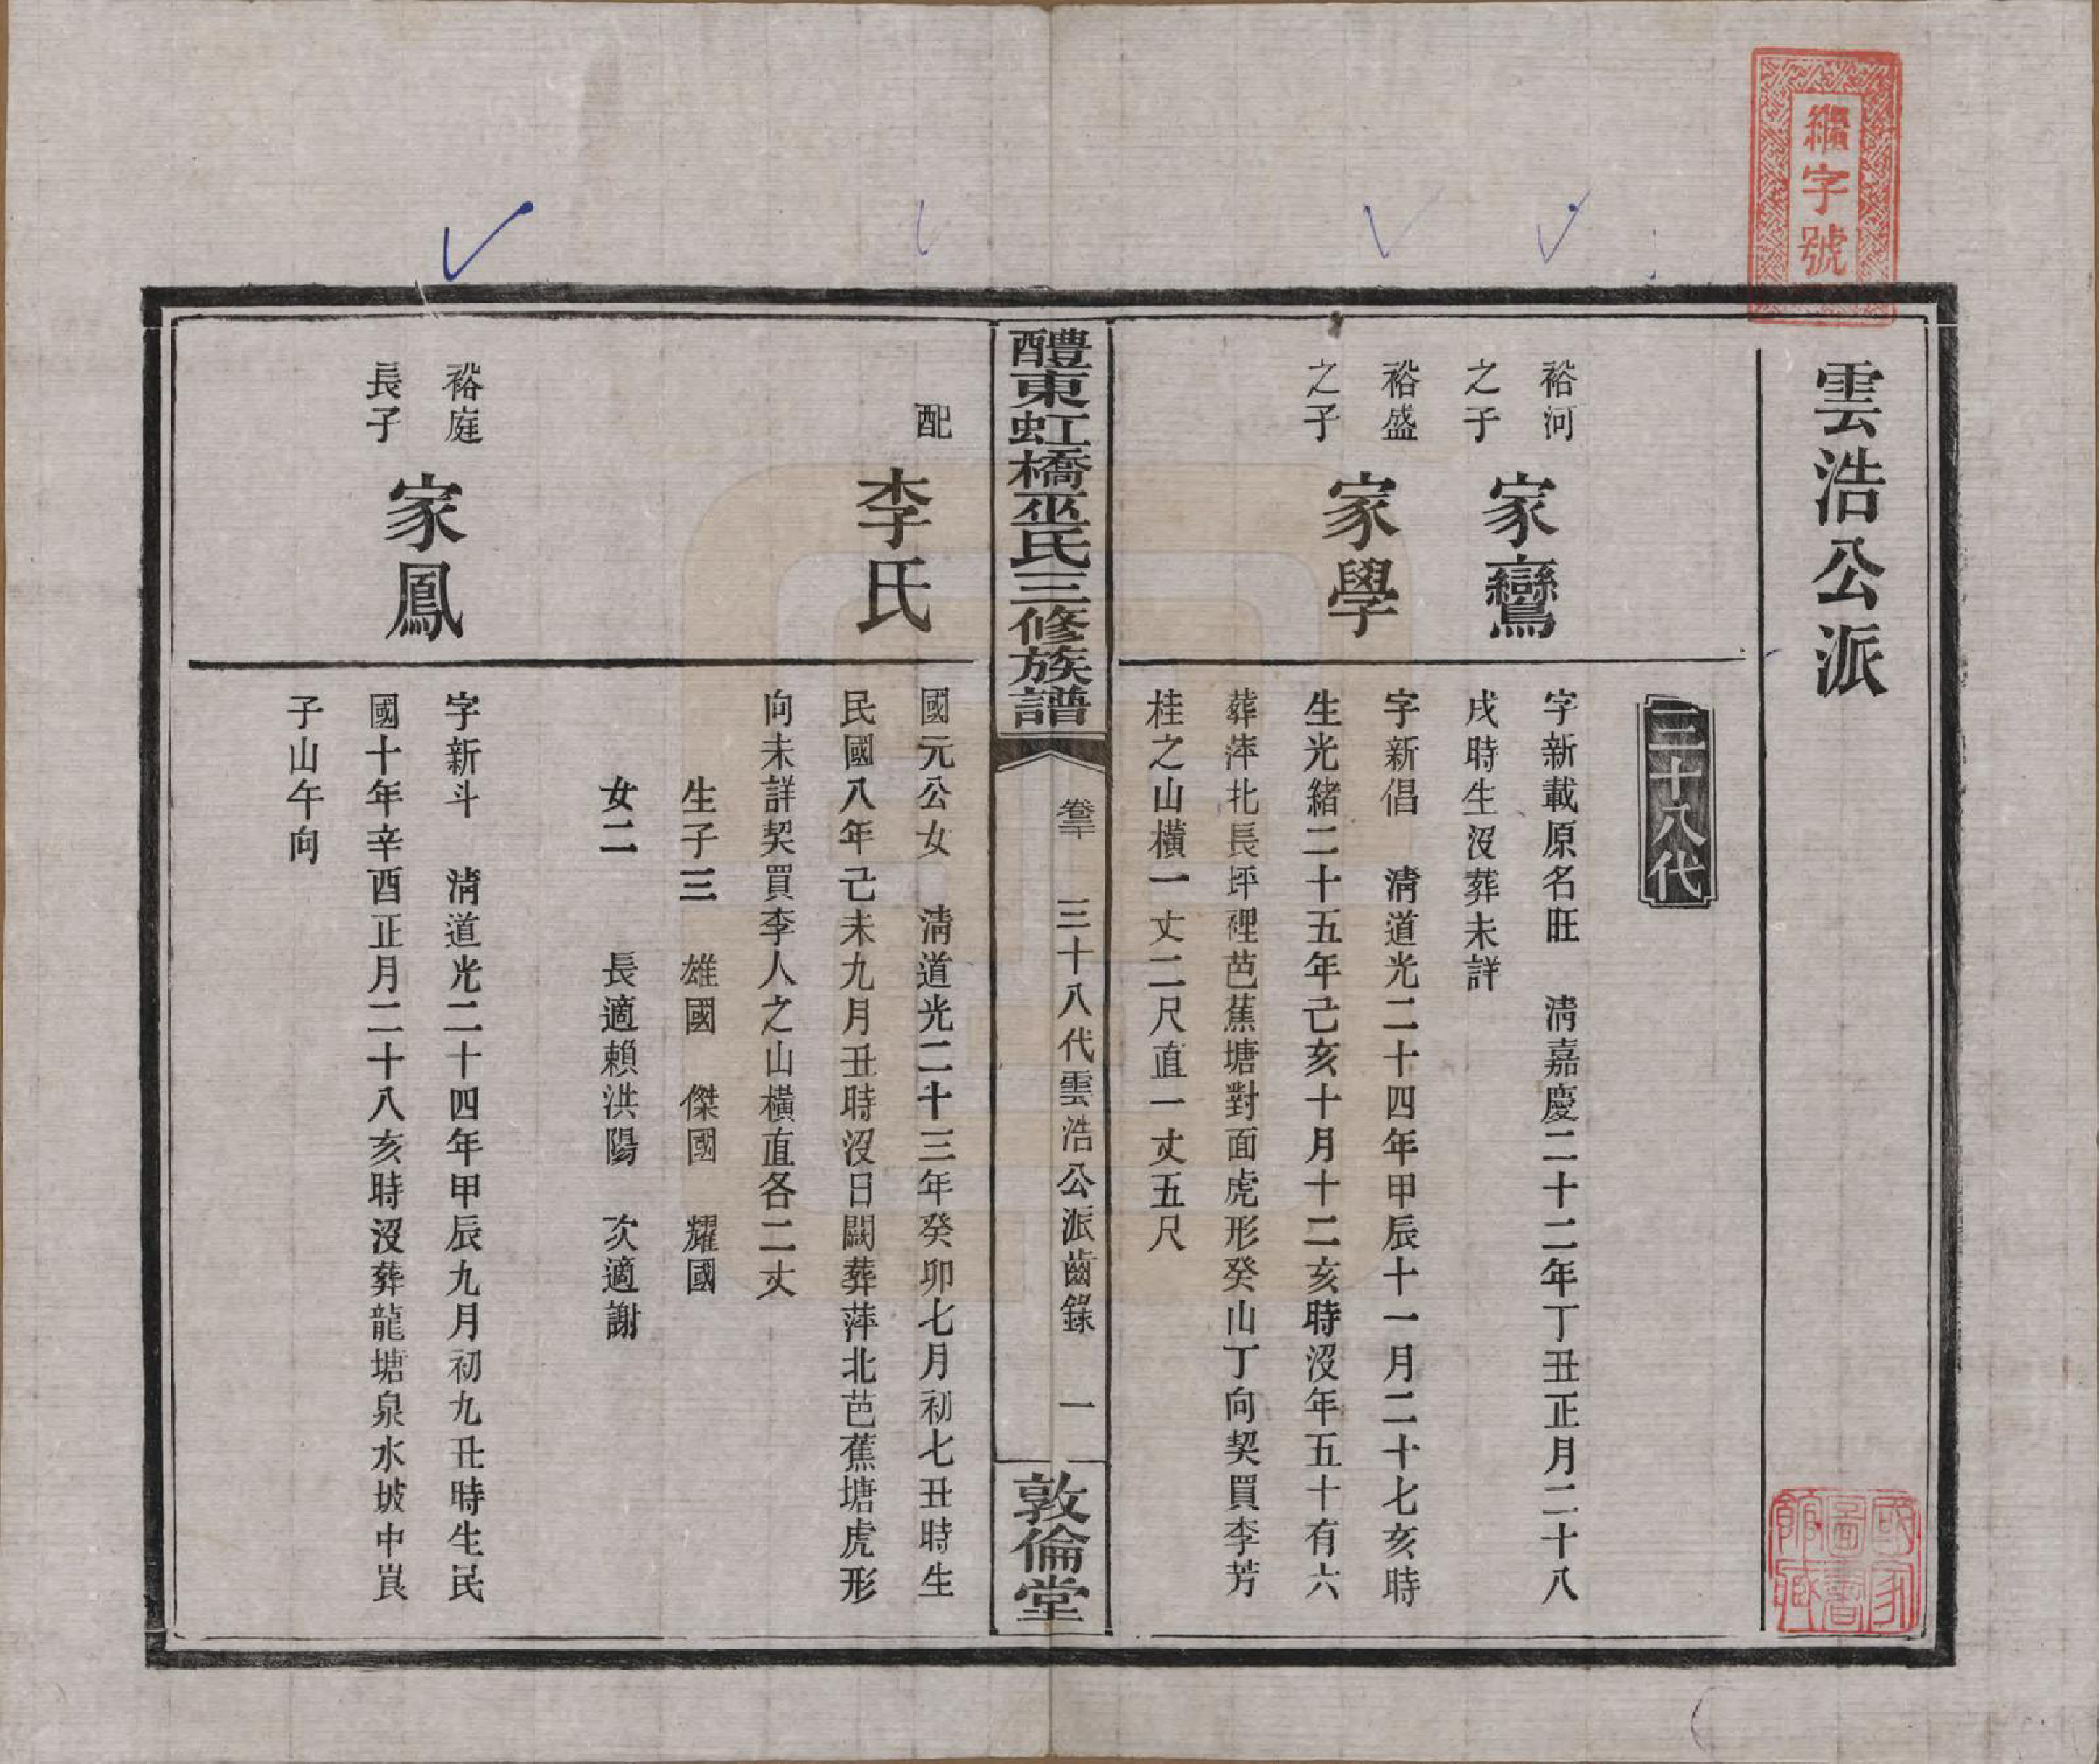 綿字號
雲浩公派
三十八代
裕河
之子
家鸞
字新載原名旺 淸嘉慶二十二年丁丑正月二十八
戌時生沒葬未詳
裕盛
之子
家學
字新倡 淸道光二十四年甲辰十一月二十七亥時
生光緒二十五年己亥十月十二亥時沒年五十有六
葬萍北長坪裡芭蕉塘對面虎形癸山丁向契買李芳
桂之山橫一丈二尺直一丈五尺
醴東虹橋巫氏三修族譜
三十八代雲浩公派齒錄 一
敦倫堂
配
李氏
國元公女 淸道光二十三年癸卯七月初七丑時生
民國八年己未九月丑時沒日闕葬萍北芭蕉塘虎形
向未詳契買李人之山橫直各二丈
生子三 雄國 傑國 耀國
女二 長適賴洪陽 次適謝
裕庭
長子
家鳳
字新斗 淸道光二十四年甲辰九月初九丑時生民
國十年辛酉正月二十八亥時沒葬龍塘泉水坡中崀
子山午向
國家圖書館藏